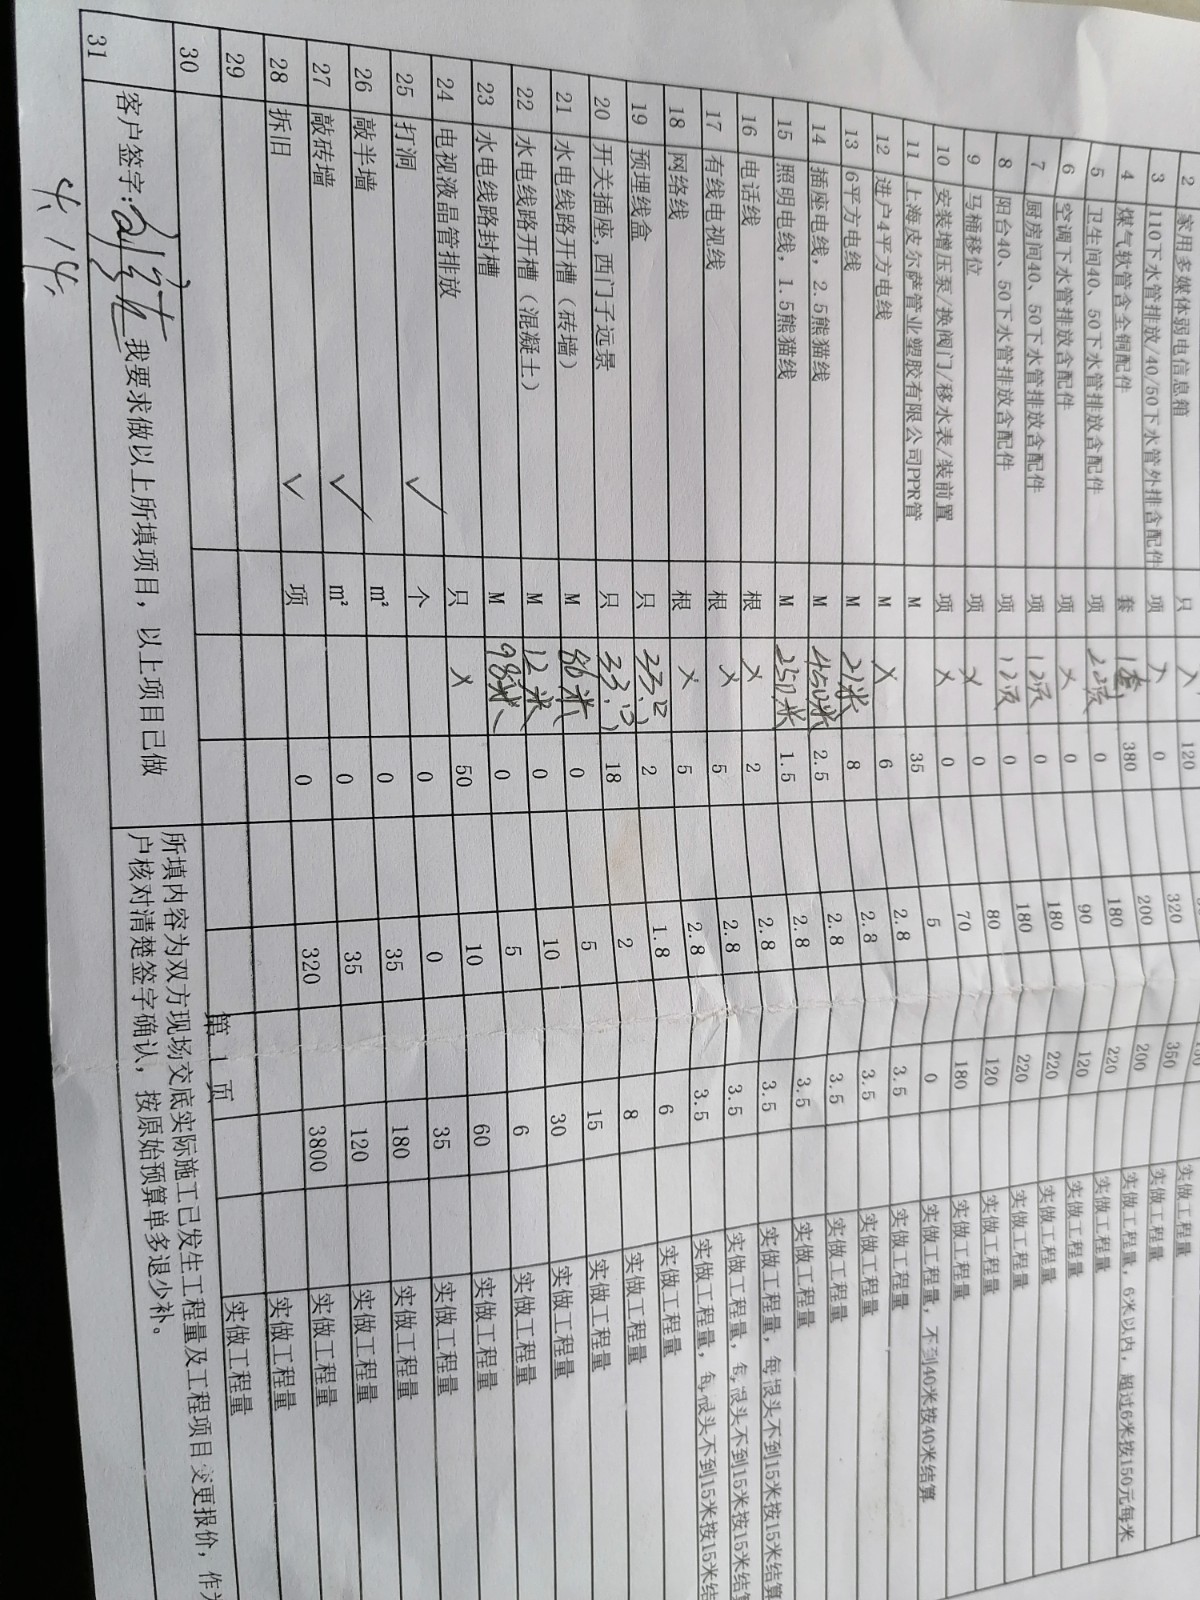 2 家用多媒体弱电信息箱 只 120
3 110下水管排放/40/50下水管外排含配件 项 0 320 350 实做工程量
4 煤气软管含全铜配件 套 1套 380 200 200 实做工程量,6米以内,超过6米按150元每米
5 卫生间40、50下水管排放含配件 项 2项 0 180 220 实做工程量
6 空调下水管排放含配件 项 X 0 90 120 实做工程量
7 厨房间40、50下水管排放含配件 项 1项 0 180 220 实做工程量
8 阳台40、50下水管排放含配件 项 1项 0 180 220 实做工程量
9 马桶移位 项 X 0 80 120 实做工程量
10 安装增压泵/换阀门/移水表/装前置 项 X 0 70 180 实做工程量
11 上海皮尔萨管业塑胶有限公司PPR管 M 35 5 0 实做工程量,不到40米按40米结算
12 进户4平方电线 M X 6 2.8 3.5 实做工程量
13 6平方电线 M 21米 8 2.8 3.5 实做工程量
14 插座电线,2.5熊猫线 M 450米 2.5 2.8 3.5 实做工程量
15 照明电线,1.5熊猫线 M 250米 1.5 2.8 3.5 实做工程量
16 电话线 根 X 2 2.8 3.5 实做工程量,每根头不到15米按15米结算
17 有线电视线 根 X 5 2.8 3.5 实做工程量,每根头不到15米按15米结算
18 网络线 根 X 5 2.8 3.5 实做工程量,每根头不到15米按15米结
19 预埋线盒 只 33只 2 1.8 6 实做工程量
20 开关插座,西门子远景 只 33只 18 2 8 实做工程量
21 水电线路开槽(砖墙) M 86米 0 5 15 实做工程量
22 水电线路开槽(混凝土) M 12米 0 10 30 实做工程量
23 水电线路封槽 M 98米 0 5 6 实做工程量
24 电视液晶管排放 只 X 50 10 60 实做工程量
25 打洞 ✓ 个 0 0 35 实做工程量
26 敲半墙 m² 0 35 180 实做工程量
27 敲砖墙 ✓ m² 0 35 120 实做工程量
28 拆旧 ✓ 项 0 320 3800 实做工程量
29 实做工程量
30 实做工程量
第 1 页
31 客户签字: 我要求做以上所填项目,以上项目已做
所填内容为双方现场交底实际施工已发生工程量及工程项目变更报价,作为
户核对清楚签字确认,按原始预算单多退少补。